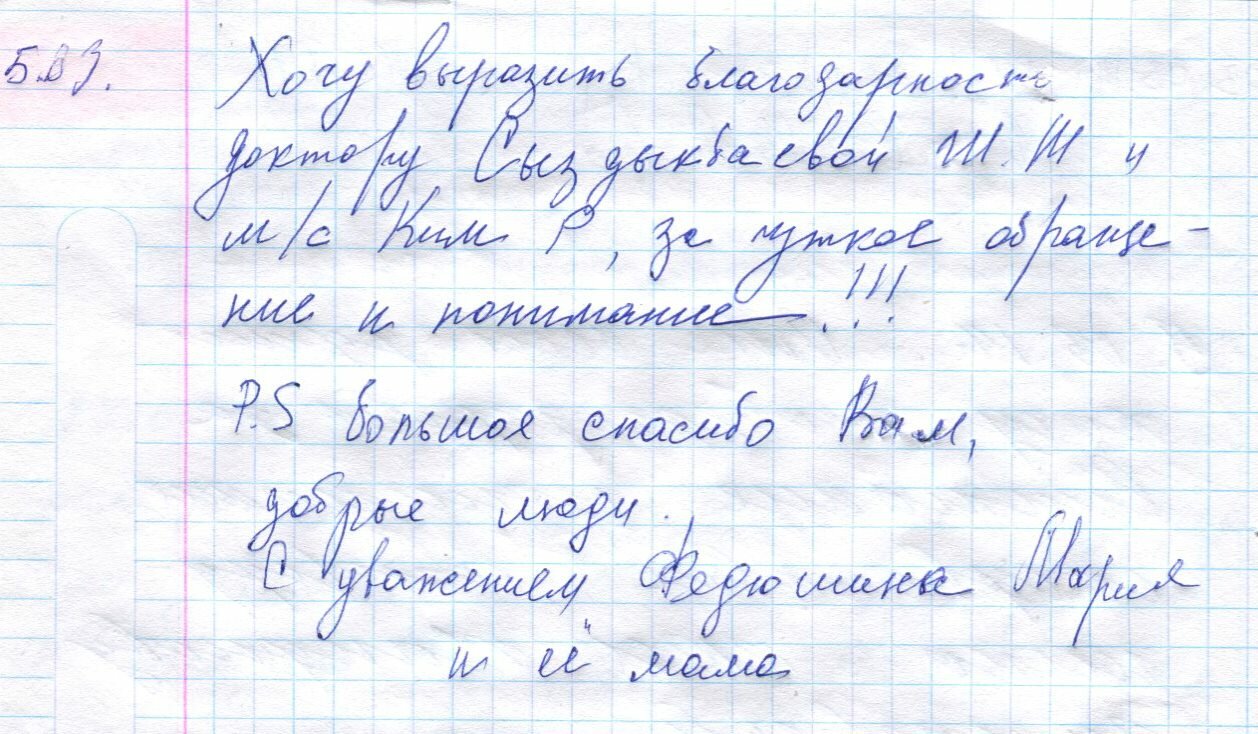 5.03. Хочу выразить благодарность
доктору Сыздыкбаевой Ж.Ж и
м/с Ким Р, за чуткое обраще-
ние и понимание!!!
P.S большое спасибо Вам,
добрые люди.
С уважением Федюшина Мария
и её мама